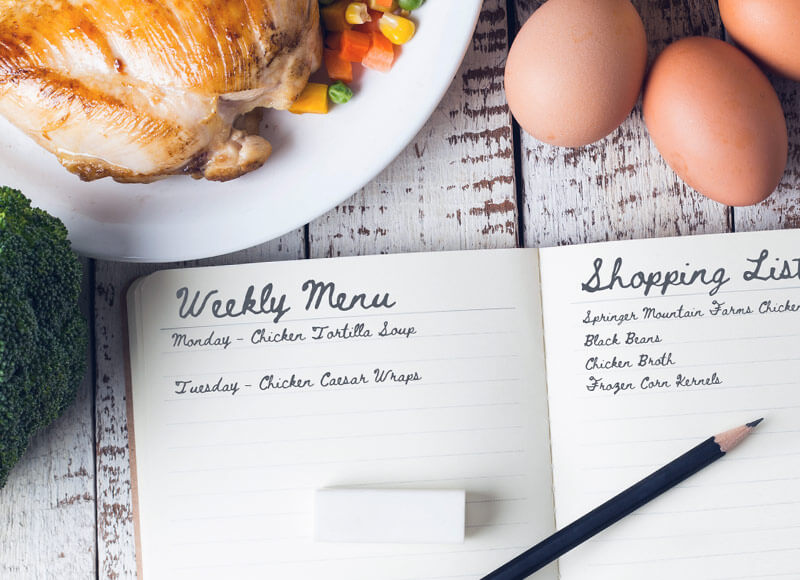 Weekly Menu
Monday - Chicken Tortilla Soup
Tuesday - Chicken Caesar Wraps
Shopping List
Springer Mountain Farms Chicken
Black Beans
Chicken Broth
Frozen Corn Kernels